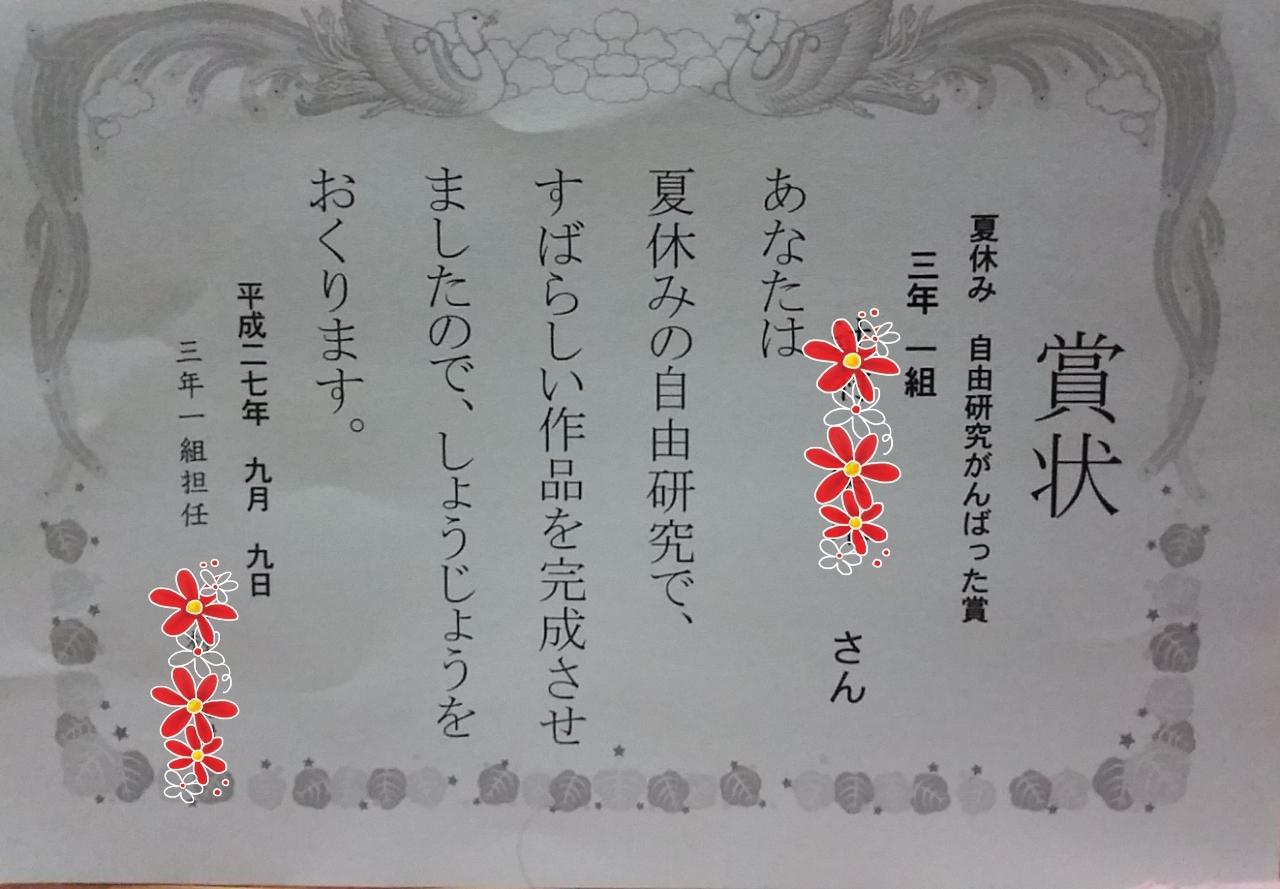 賞状
夏休み 自由研究がんばった賞
三年 一組
さん
あなたは
夏休みの自由研究で、
すばらしい作品を完成させ
ましたので、しょうじょうを
おくります。
平成二七年 九月 九日
三年一組担任